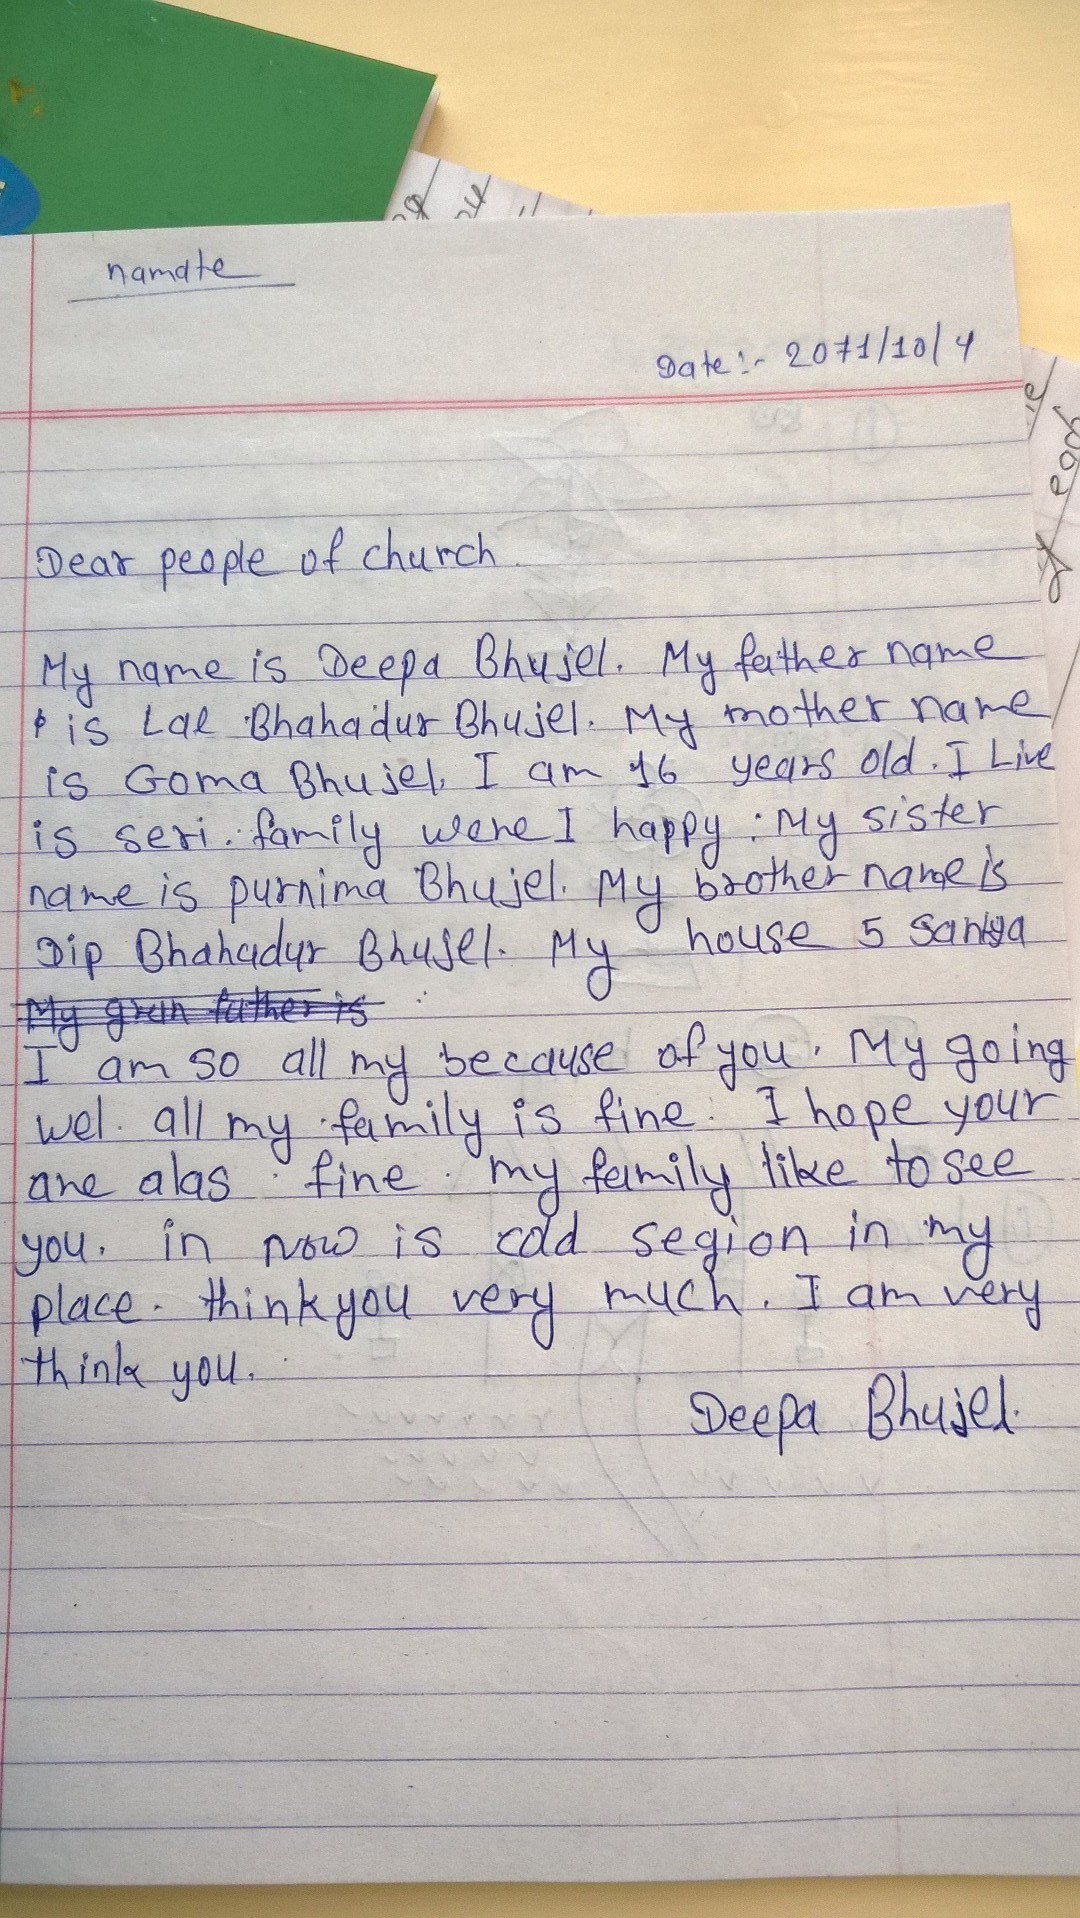 namate
Date:- 2071/10/4
Dear people of church.
My name is Deepa Bhujel. My father name
is Lal Bhahadur Bhujel. My mother name
is Goma Bhujel. I am 16 years old. I Live
is seri. family were I happy. My sister
name is purnima Bhujel. My brother name is
Dip Bhahadur Bhujel. My house 5
My gran father is
I am so all my because of you. My going
wel. all my family is fine. I hope your
are alas fine. my family like to see
you. in now is cold segion in my
place. think you very much. I am very
think you.
Deepa Bhujel.